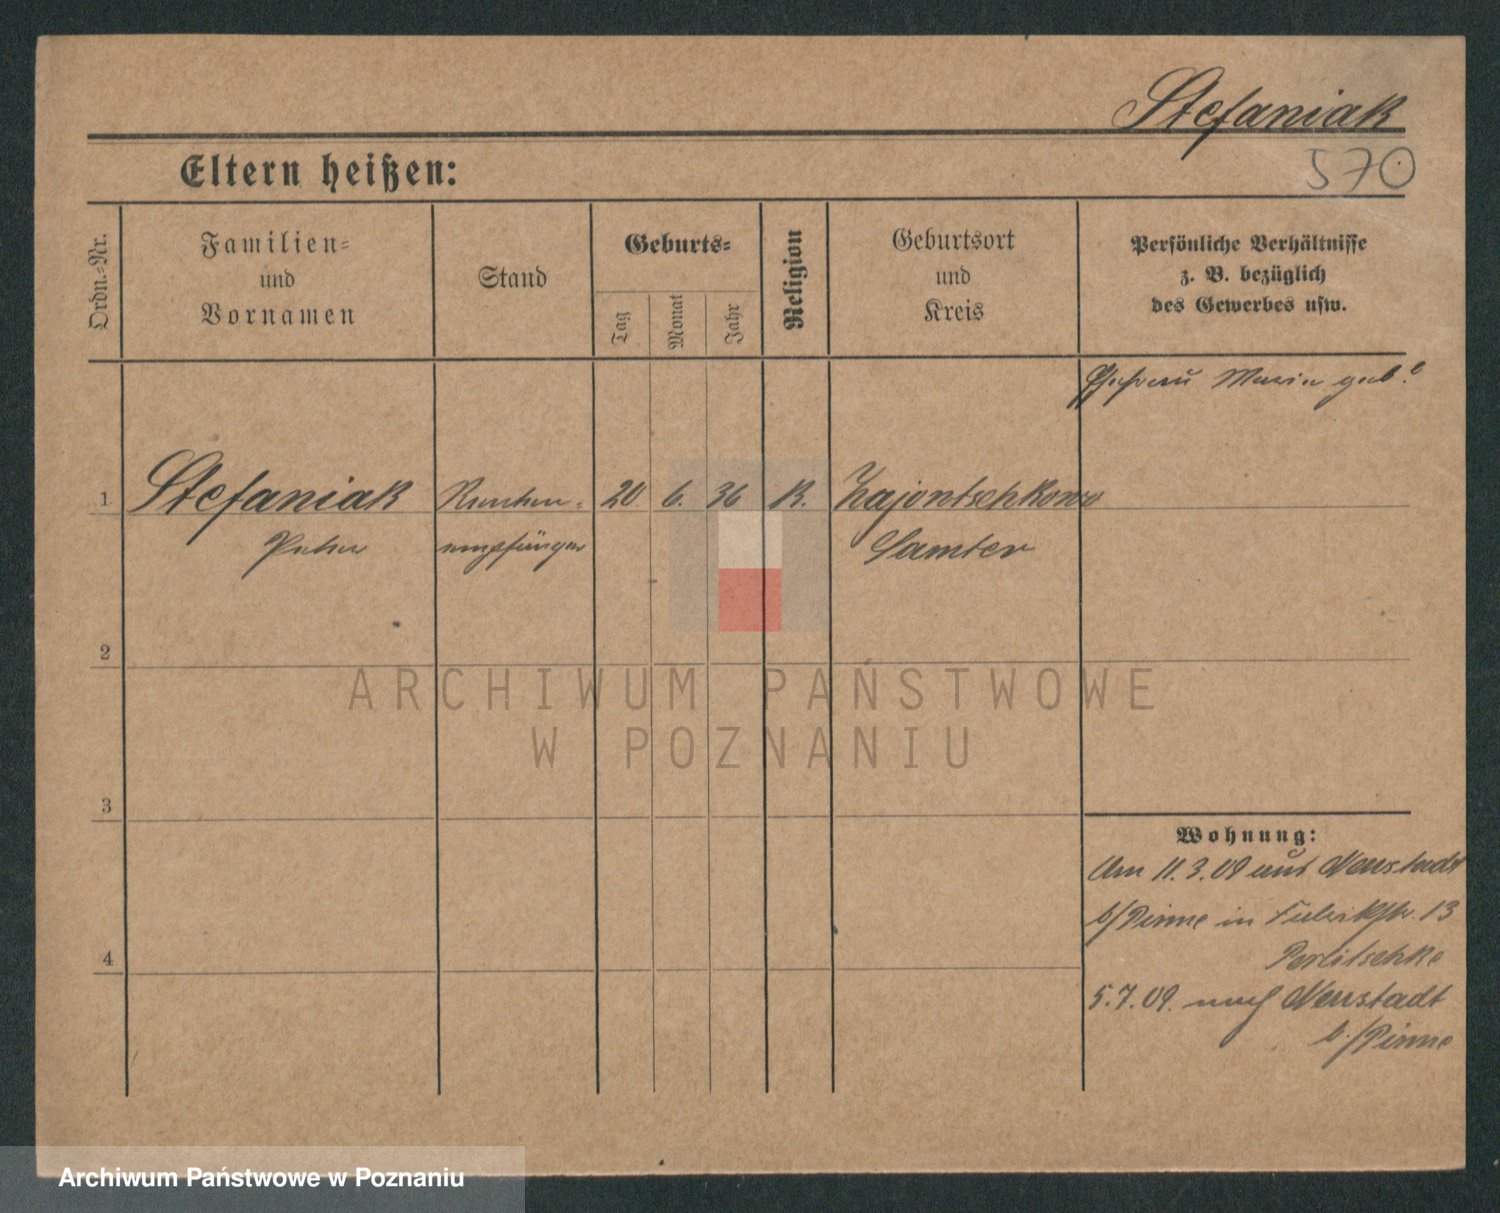 Stefaniak
570
Eltern heißen:
Ordn.-Nr.
Familien-
und
Vornamen
Stand
Geburts-
Tag
Monat
Jahr
Religion
Geburtsort
und
Kreis
Persönliche Verhältnisse
z. B. bezüglich
des Gewerbes usw.
Ehefrau Maria geb. ?
1 Stefaniak Renten- 20. 6. 36 K. Zajontschkowo
Peter empfänger Samter
2
ARCHIWUM PAŃSTWOWE
W POZNANIU
3
Wohnung:
Am 11.3.09 aus Neustadt
b/Pinne in Fabrikstr. 13
Perlitschke
4
5.7.09. nach Neustadt
b./Pinne
Archiwum Państwowe w Poznaniu